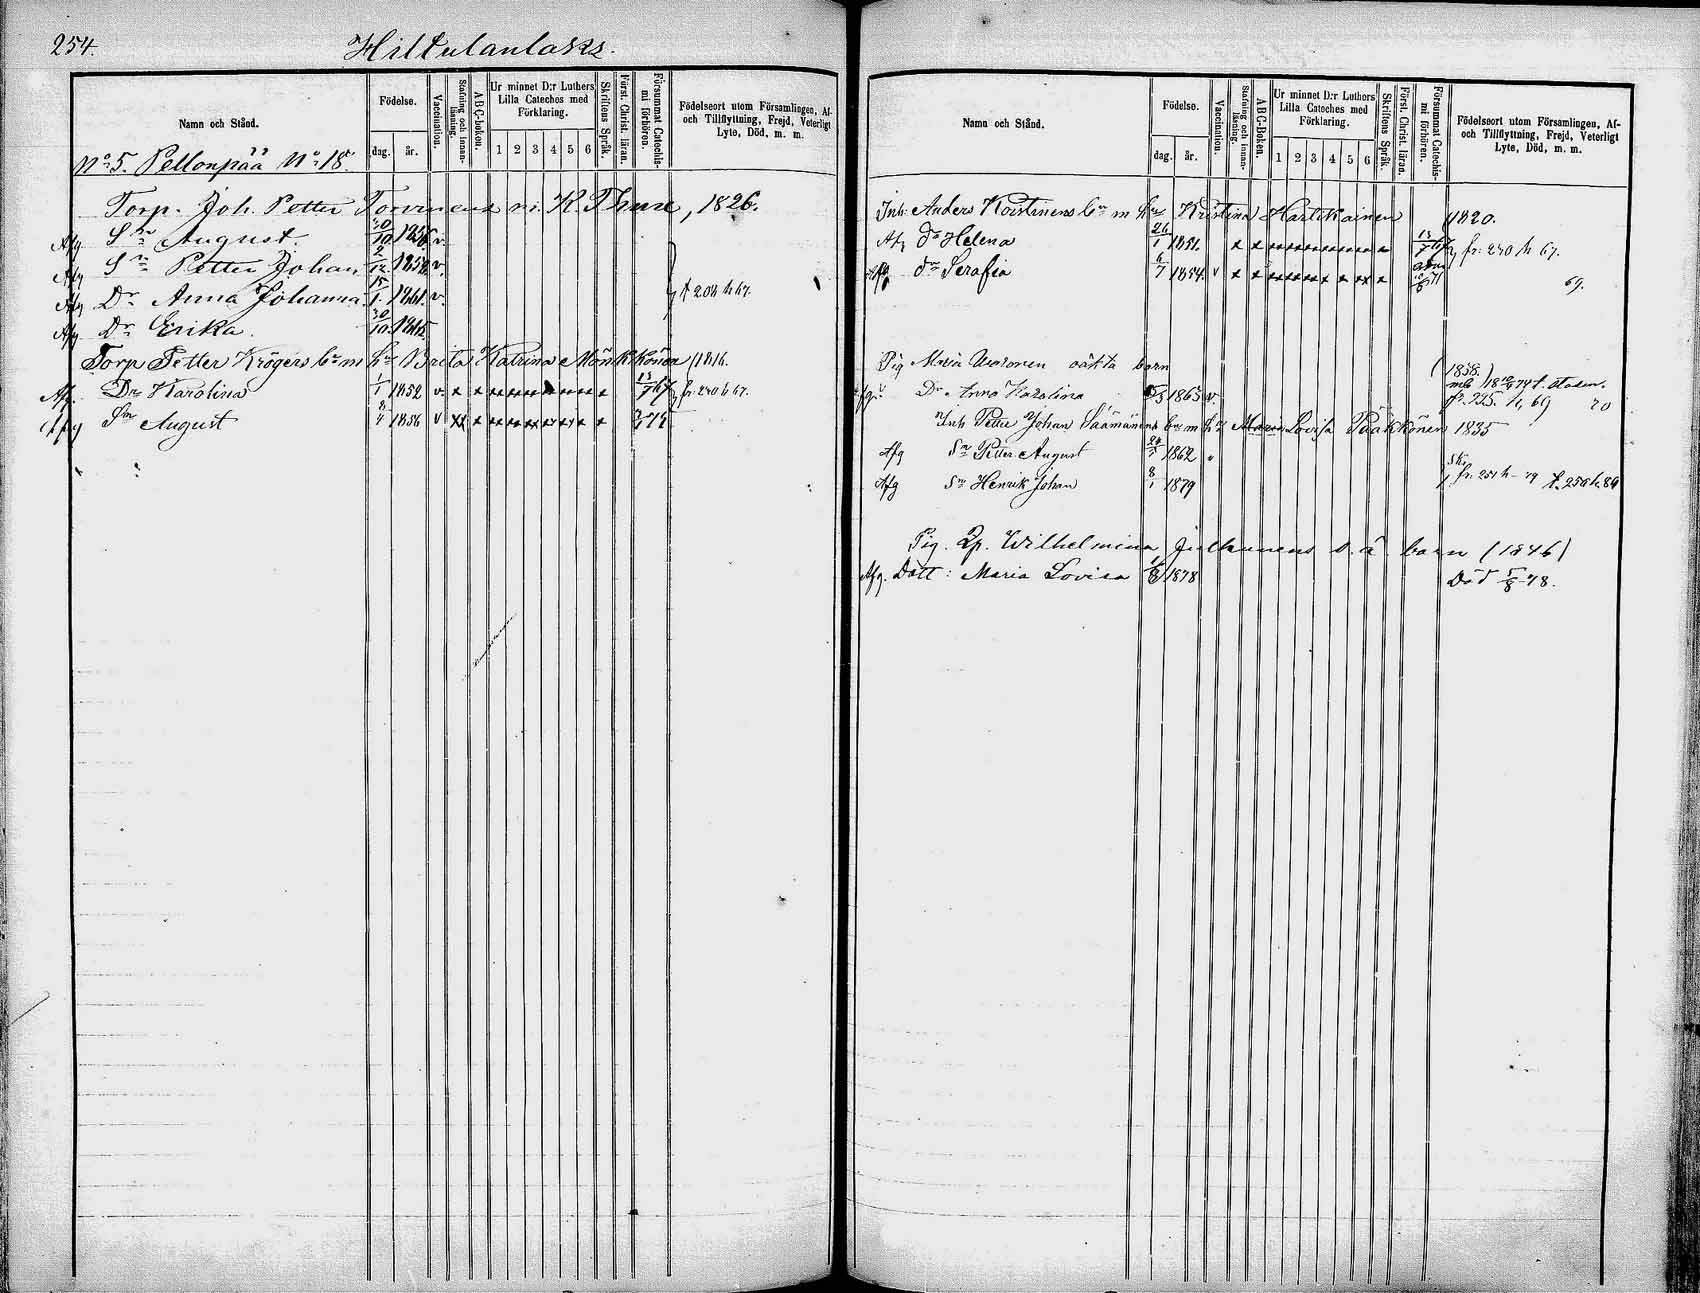 254.
Hiltulanlaks.
Namn och Stånd.
Födelse.
dag.
år.
Vaccination.
Stafning och innan-
läsning.
A B C-boken.
Ur minnet D:r Luthers
Lilla Cateches med
Förklaring.
1 2 3 4 5 6
Skriftens Språk.
Först. Christ. läran.
Försummat Catechis-
mi förhören.
Födelseort utom Församlingen, Af-
och Tillflyttning, Frejd, Veterligt
Lyte, Död, m. m.
No 5. Pellonpää No 18
Torp. Joh. Petter Torvinens m. K. Thure, 1826.
Afg Sn August. 30/10 1856 v.
Afg Sn Petter Johan 2/12 1858 v.
Afg Dr Anna Johanna 15/1 1861 v. t 208 h 67.
Afg Dr Erika. 30/10 1865
Torp Petter Krögers br m hu Brita Katrina Mönkkönen (1816.
Af. Dr Karolina 1/1 1852 v x x 13/7 67 fr. 240 h 67.
Afg Sn August 8/4 1856 v xx x
Namn och Stånd.
Födelse.
dag.
år.
Vaccination.
Stafning och innan-
läsning.
A B C-boken.
Ur minnet D:r Luthers
Lilla Cateches med
Förklaring.
1 2 3 4 5 6
Skriftens Språk.
Först. Christ. läran.
Försummat Catechis-
mi förhören.
Födelseort utom Församlingen, Af-
och Tillflyttning, Frejd, Veterligt
Lyte, Död, m. m.
Inh: Anders Korstinens br m hu Kristina Hartikainen 1820.
Af dr Helena 26/1 1851. x x 13/7 67 fr: 240 h 67.
Afg dr Serafia 6/7 1854 v x x 69.
Pig Maria oäkta barn (1838.)
Dr Anna Karolina 1865 v fr. 235. h, 69 20
Inh Petter Johan Säämänens br m hu Maria Lovisa Pääkkönen 1835
Afg Sn Petter August 24/ 1862
Afg Sn Henrik Johan 8/1 1879 fr. 251 h - 79 t. 250 h. 80
Pig. Qp. Wilhelmina Julkunens o. ä. barn (1846)
Afg. Dott: Maria Lovisa 1878 Död 5/8 -78.